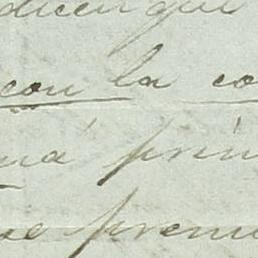 dicen que
con la co
na' prin
se prem